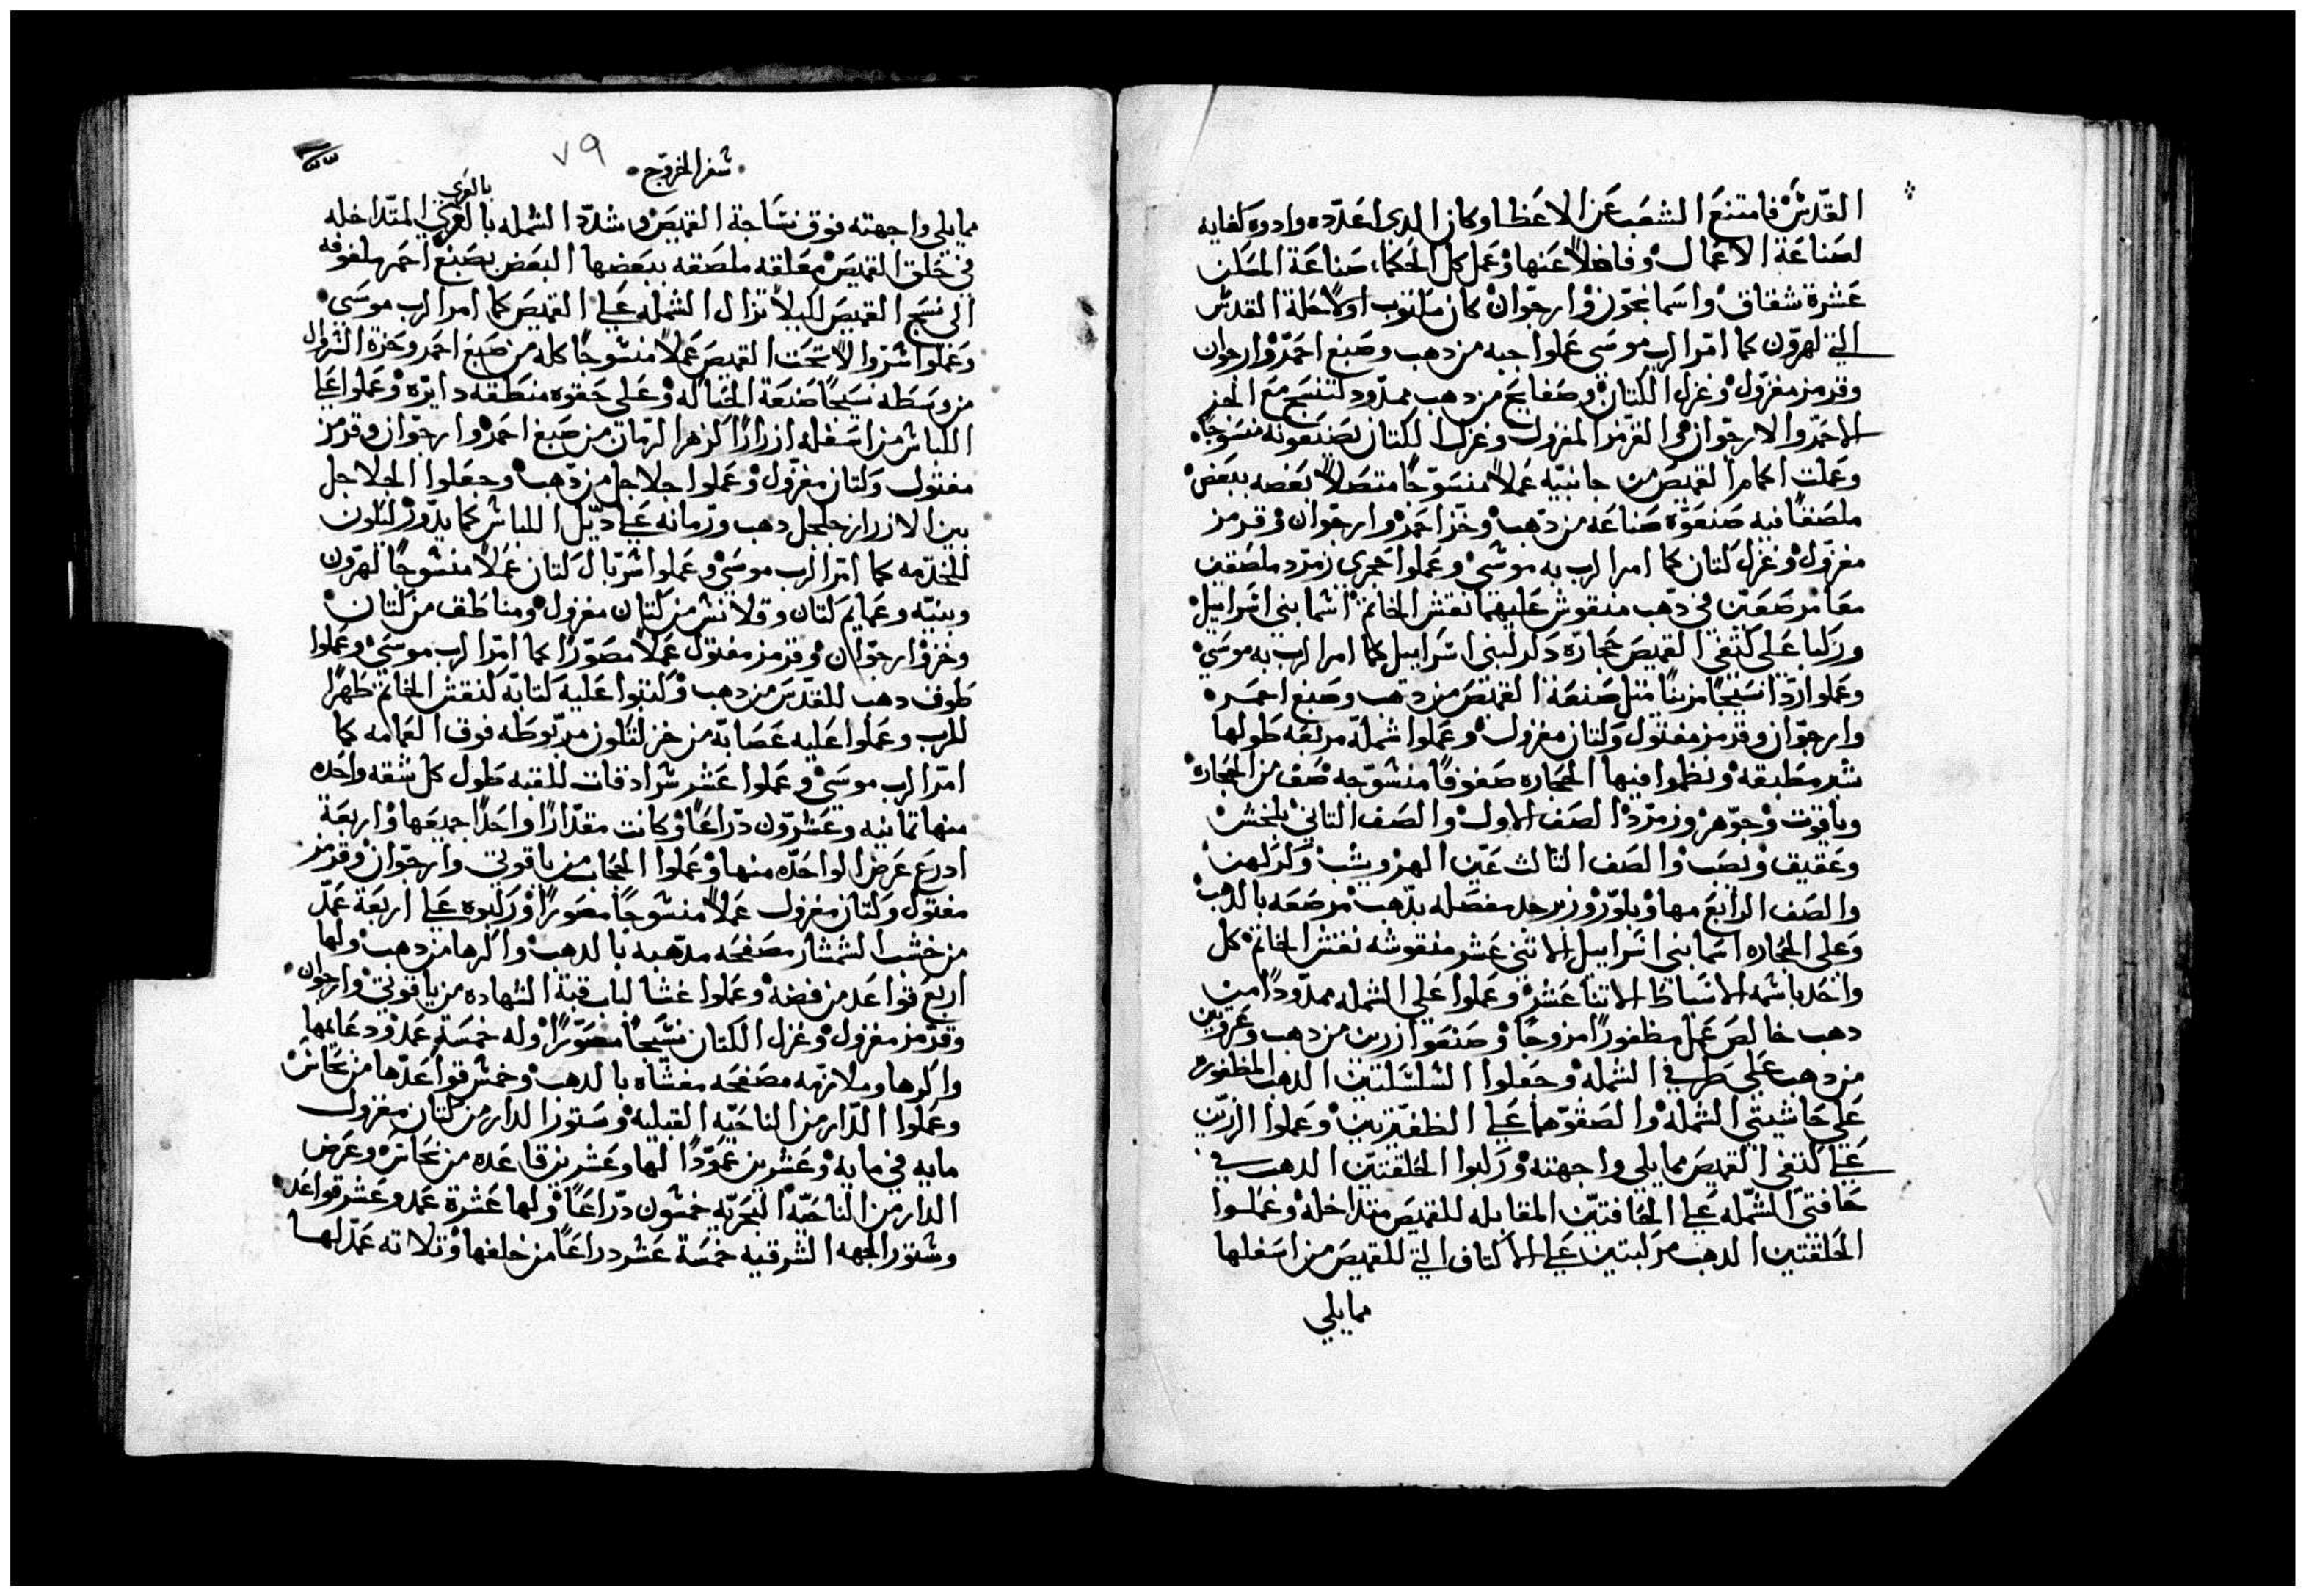 القدّس فامتنع الشعب عن الاعطا وكان الدى اعدّده وادوه كفايه
لصناعة الاعمال وفاضلاً عنها وعمل كل الحكما صناعة المسكن
عشرة شقاق واسمانجون وارجوان كان مكتوب اولا حلة القدس
التي لهرون كما امر الرب موسى عملوا جبه من دهب وصبغ احمر وارجوان
وقرمز مغزول وغزل الكتان وصفايح من دهب ممدود لتنسج مع الخز
الاحمر والارجوان والقرمز المغزول وغزل الكتان يصنعونه منسوجاً
وعملت اكمام القميص من جانبيه عملاً منسوجاً متصلاً بعضه ببعض
ملصقاً فيه صنعوه صناعه من دهب وخز احمر وارجوان وقرمز
مغزول وغزل كتان كما امر الرب به موسى وعملوا حجرى زمرد ملصقين
معا مرصعين في دهب منقوش عليهما نقش الخاتم اسما بني اسراييل
وركبا على كتفي القميص حجارة دكر لبنى اسراييل كما امر الرب به موسى
وعملوا ردا نسيجاً مزيناً مثل صنعة القميص من دهب وصبغ احمر
وارجوان وقرمز مفتول وكتان مغزول وعملوا شملة مربعه طولها
شبر مطبقه ونظموا فيها الحجاره صفوفاً منسوجه صف من الحجاره
وياقوت وجوهر وزمرد الصف الاول والصف التاني بلخش
وعقيق ونصب والصف التالت عين الهر ويشب وكركهن
والصف الرابع مها وبلور وزبرجد مفصله بدهب مرصعه بالدهب
وعلى الحجاره اسما بنى اسراييل الاثني عشر منقوشه نقش الخاتم كل
واحد باسمه الاسباط الاتنا عشر وعملوا على الشمله ممدوداً من
دهب خالص عمل مظفوراً مزوجاً وصنعوا زرين من دهب وعروتين
من دهب على طرفي الشمله وجعلوا السلسلتين الدهب المظفوره
على حاشيتي الشمله والصقوهما على الظفيرتين وعملوا الزرين
على كتفي القميص مما يلى واجهته وركبوا الحلقتين الدهب في
حافتي الشمله على الحافتين المقابله للقميص متداخله وعملوا
الحلقتين الدهب مركبتين على الاكتاف التي للقميص من اسفلها
مما يلي
سفر الخروج
٧٩
بالعرى
مما يلى واجهته فوق نساجة القميص وشدد الشمله بالعرى المتداخله
في حلق القميص معلقه ملصقه ببعضها البعض بصبغ احمر ملفوفه
الى نسج القميص لكيلا تزال الشمله على القميص كما امر الرب موسى
وعملوا سروالا تحت القميص عملاً منسوجاً كله من صبغ احمر وحزة السروال
من وسطه نسيجاً صنعة الحباله وعلى حقوه منطقه دايره وعملوا على
اللباس من اسفله ازراراً كزهر الرمان من صبغ احمر وارجوان وقرمز
مفتول وكتان مغزول وعملوا جلاجل من دهب وجعلوا الجلاجل
بين الازرار جلجل دهب ورمانه على ديل اللباس كما يدور لتكون
للخدمه كما امر الرب موسى وعملوا سربال كتان عملاً منسوجاً لهرون
وبنيه وعمايم كتان وقلانس من كتان مغزول ومناطق من كتان
وخز وارجوان وقرمز مفتول عملاً مصوراً كما امر الرب موسى وعملوا
طوق دهب للقدس من دهب وكتبوا عليه كتابة كنقش الخاتم طهراً
للرب وعملوا عليه عصابة من خز لتكون مربوطه فوق العمامه كما
امر الرب موسى وعملوا عشر سرادقات للقبه طول كل شقه واحده
منها تمانيه وعشرون دراعاً وكانت مقداراً واحداً جميعها واربعة
ادرع عرض الواحده منها وعملوا الحجاب من ياقوتي وارجوان وقرمز
مفتول وكتان مغزول عملاً منسوجاً مصوراً وركبوه على اربعة عمد
من خشب الشمشار مصفحه مدهبه بالدهب واكرها من دهب ولها
اربع قواعد من فضه وعملوا غشا لباب قبة الشهاده من ياقوتي وارجوان
وقرمز مغزول وغزل الكتان نسيجاً مصوراً وله خمسة عمد ودعايمها
واكرها وملازمه مصفحه مغشاه بالدهب وخمس قواعدها من نحاس
وعملوا الدار من الناحيه القبليه وستور الدار من كتان مغزول
مايه في مايه وعشرين عموداً لها وعشرين قاعده من نحاس وعرض
الدار من الناحيه البحريه خمسون دراعاً ولها عشرة عمد وعشر قواعد
وستور الجهه الشرقيه خمسة عشر دراعاً من خلفها وتلاته عمد لها